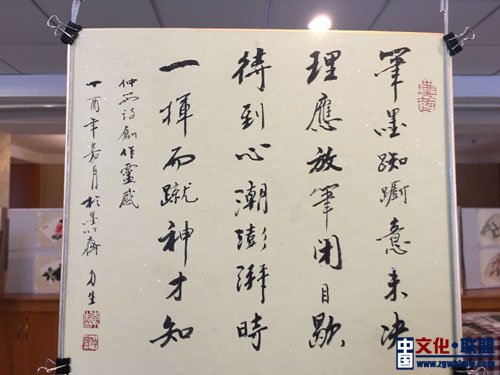 筆墨踟躕意未決
理應放筆閉目歇
待到心潮澎湃時
一揮而蹴神才知
仲詩創作靈感
丁酉年嘉月於墨齋生
中国文化·联盟